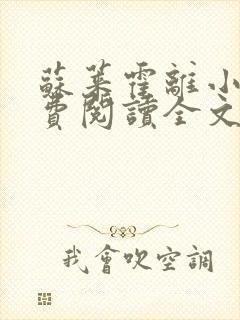 蘇葉霍離小
費閱讀全文
我會吹空調